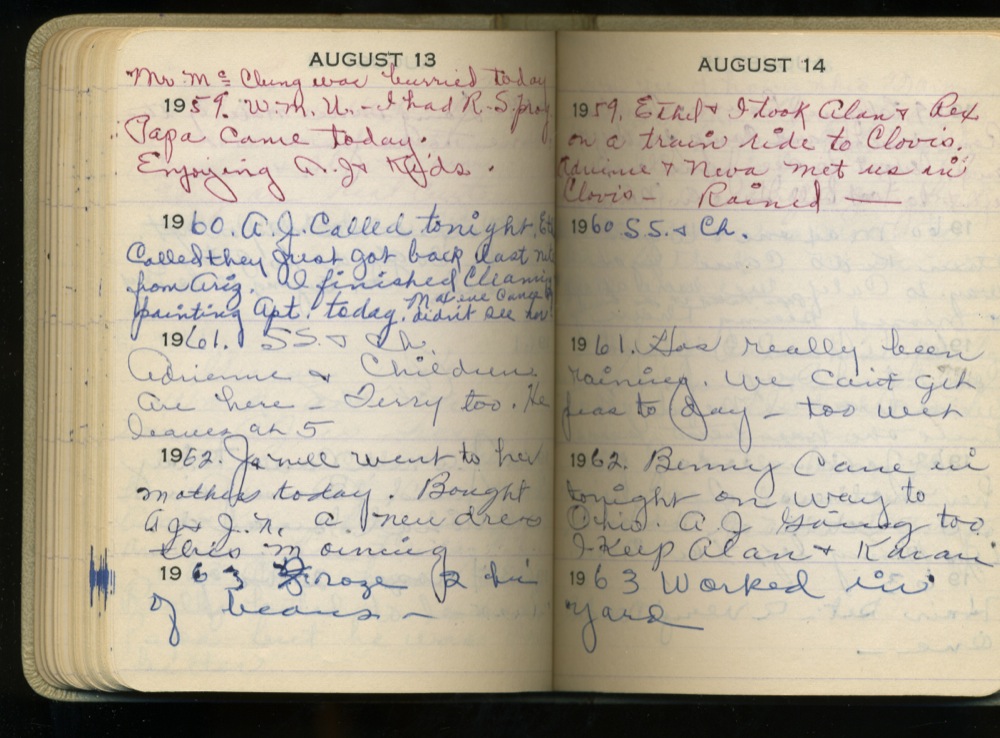 AUGUST 13
Mr. Mc Clung was burried today
1959. W.M.U. - I had R.S. prog
Papa came today.
Enjoying A.J & Kids.
1960. A.J. Called tonight. Eth
Called they just got back last nite
from Ariz. I finished cleaning
painting Apt. today. Maxine came by
didn't see her
1961. S.S. & Ch.
Adrienne & Children
are here - Terry too. He
leaves at 5
1962. Janell went to her
mothers today. Bought
A.J & J.N. a new dress
this morning
1963 Froze 2 bu
of beans -
AUGUST 14
1959. Ethel & I took Alan & Rex
on a train ride to Clovis.
Adrienne & Neva met us in
Clovis - Rained -
1960 S.S. & Ch.
1961. Has really been
raining. We can't get
peas to day - too wet
1962. Benny Came in
tonight on way to
Ohio. A.J. going too.
I Keep Alan & Karan
1963 Worked in
yard